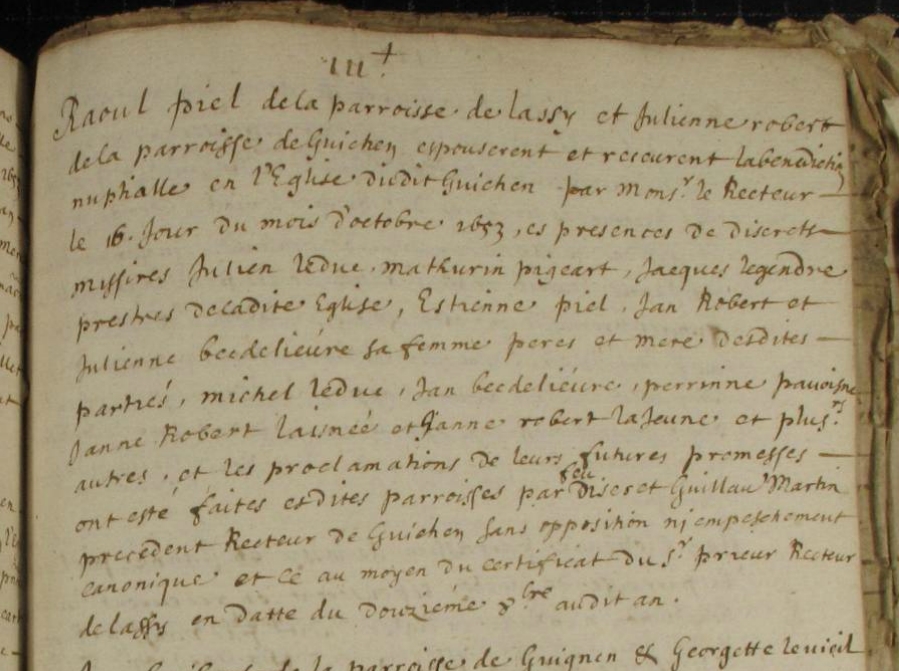 III.+
Raoul piel de la parroisse de lassy et Julienne robert
de la parroisse de Guichen espouserent et receurent la benedictiõ
nuptialle en l'Eglise dudit Guichen par Monsr. le Recteur
le 16. Jour du mois d'octobre 1653, es presences de discrets
missires Julien leduc, mathurin pigeart, Jacques legendre
prestres de ladite Eglise, Estienne piel, Jan Robert et
Julienne beedelieúre sa femme peres et mere desdites
partiés, michel leduc, Jan beedeliéure, perrinne pauoisne
Janne Robert laisneé et Janne robert la Jeune et plusrs.
autres, et les proclamations de leurs futures promesses
ont esté faites esdites parroisses par feu discret Guillaue Martin
precedent Recteur de Guichen sans opposition nj empeschement
canonique et ce au moyen du certificat du Sr. prieur Recteur
de lassy en datte du douziéme 8bre audit an.
de la parroisse de Guignen & Georgette leuieil